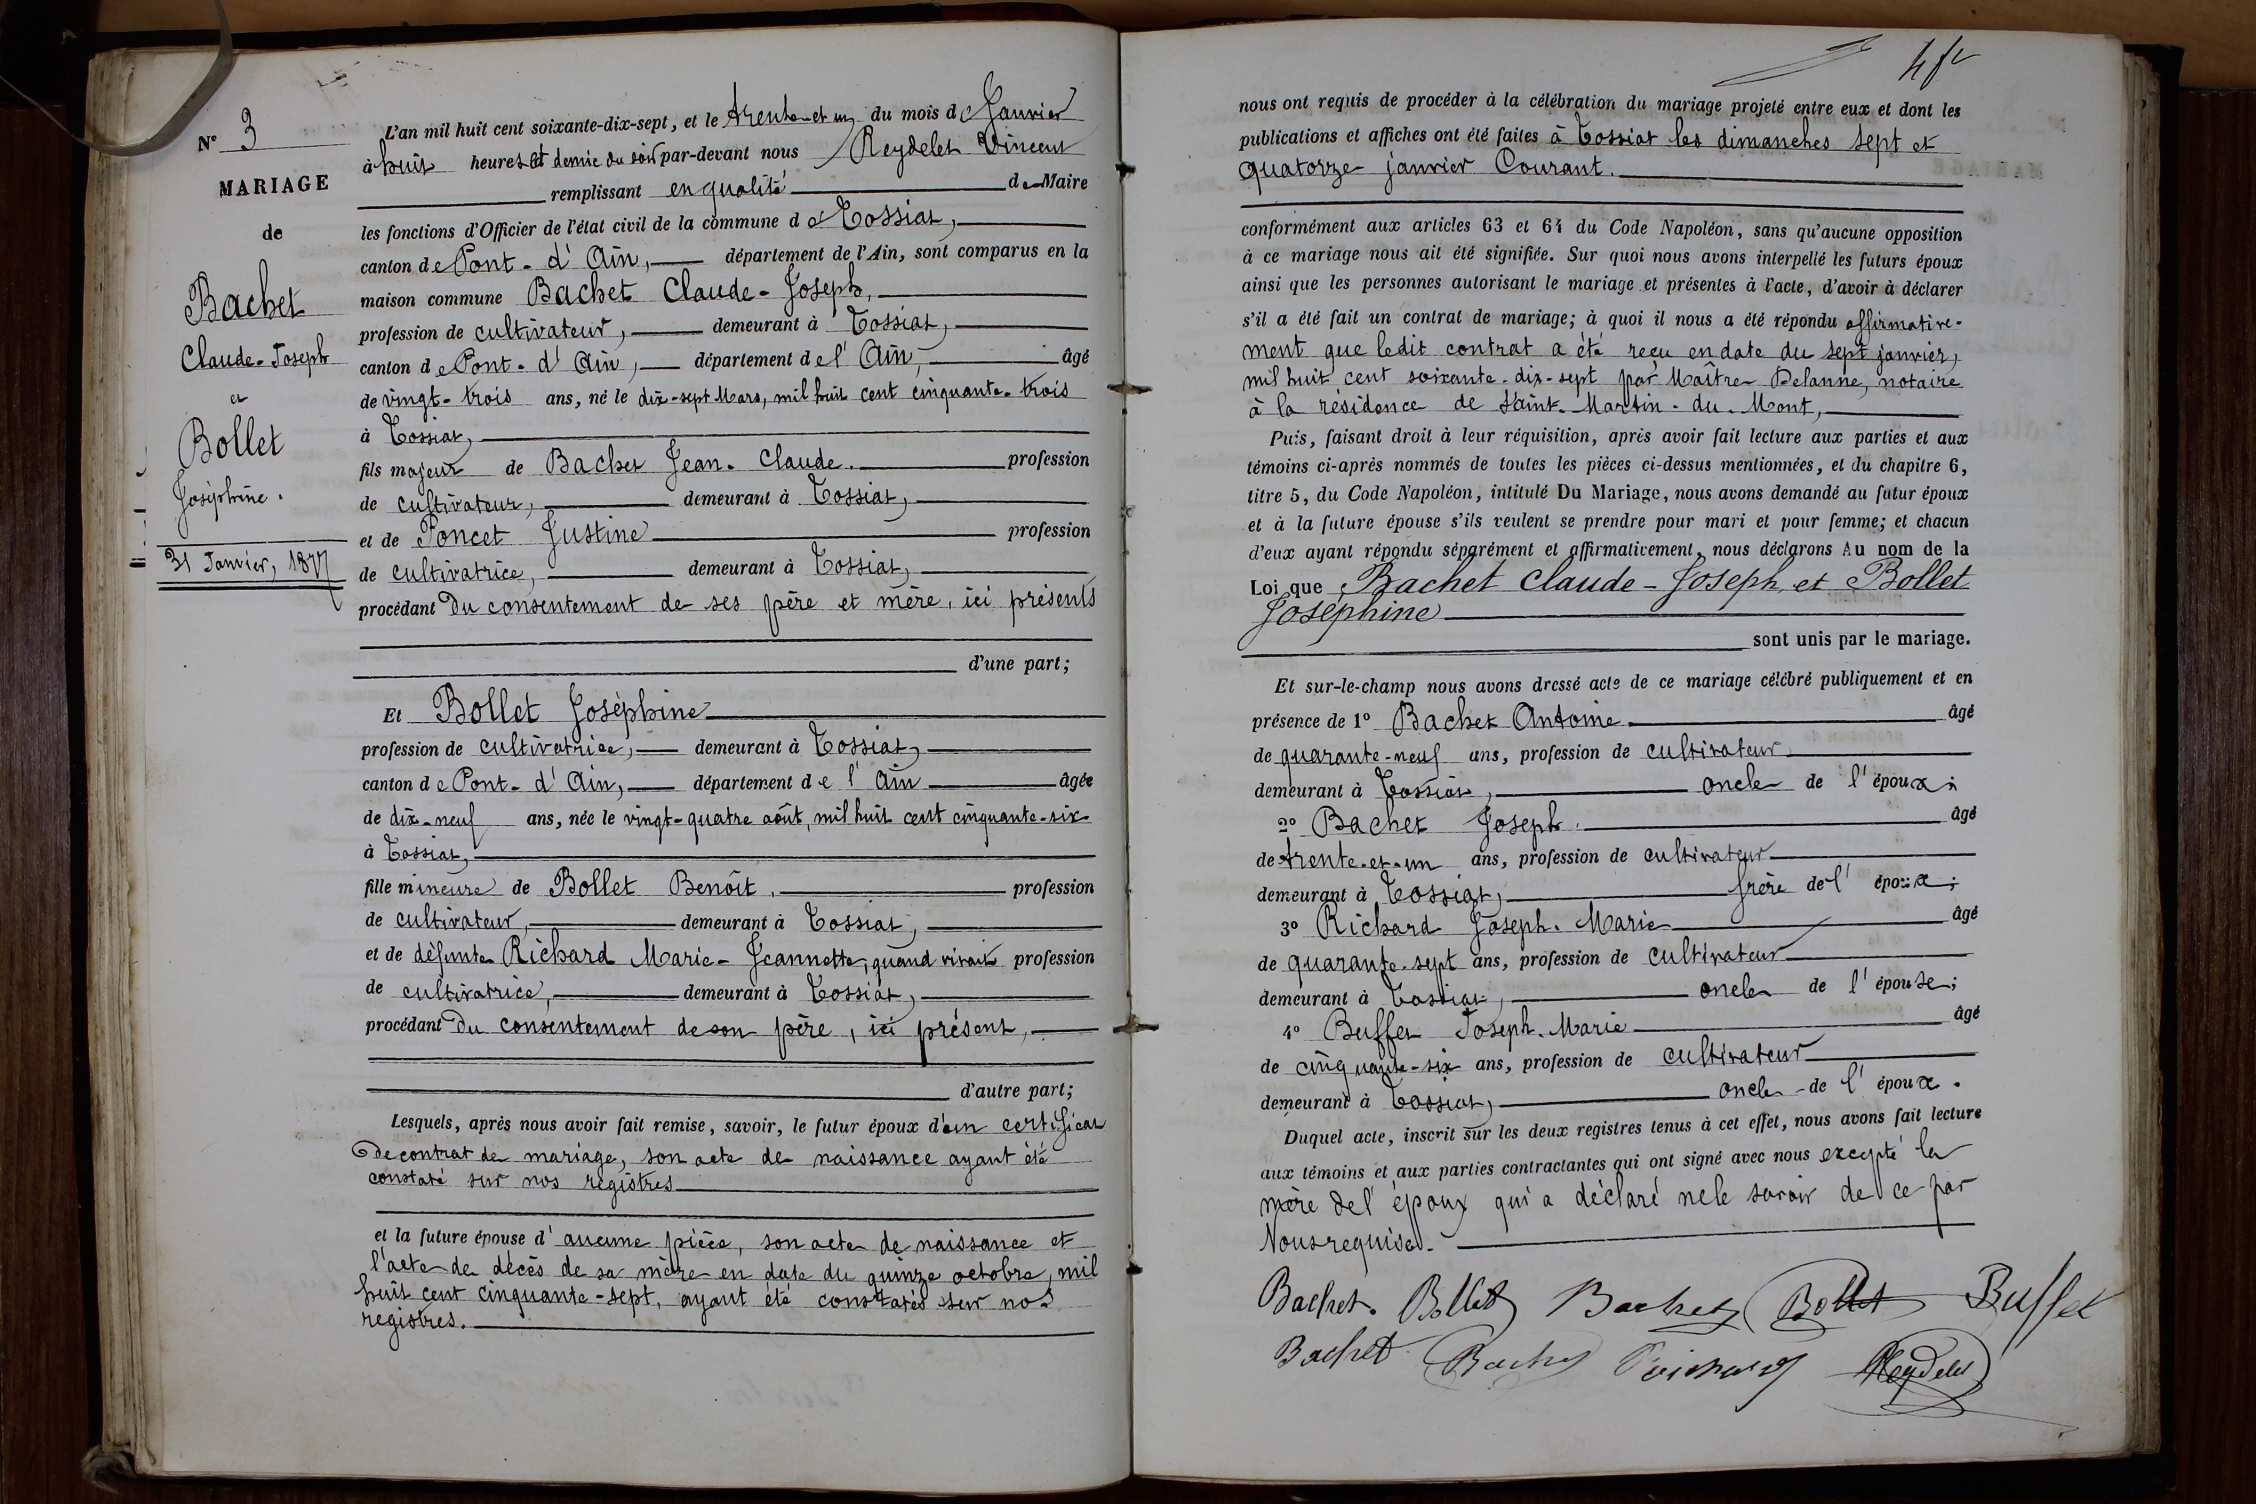 N° 3
MARIAGE
de
Bachet
Claude-Joseph
et
Bollet
Joséphine.
31 Janvier, 1877
L'an mil huit cent soixante-dix-sept, et le trente-et un du mois de Janvier
à huit heures et demie du soir par-devant nous Reydelet Vincent
remplissant en qualité de Maire
les fonctions d'Officier de l'état civil de la commune de Tossiat,
canton de Pont-d'Ain, département de l'Ain, sont comparus en la
maison commune Bachet Claude-Joseph,
profession de cultivateur, demeurant à Tossiat,
canton de Pont-d'Ain, département de l'Ain, âgé
de vingt-trois ans, né le dix-sept Mars, mil huit cent cinquante-trois
à Tossiat,
fils majeur de Bachet Jean-Claude. profession
de cultivateur, demeurant à Tossiat,
et de Poncet Justine profession
de cultivatrice, demeurant à Tossiat,
procédant Du consentement de ses père et mère, ici présents
d'une part;
Et Bollet Joséphine
profession de cultivatrice, demeurant à Tossiat,
canton de Pont-d'Ain, département de l'Ain âgée
de dix-neuf ans, née le vingt-quatre août, mil huit cent cinquante-six
à Tossiat,
fille mineure de Bollet Benoît. profession
de cultivateur, demeurant à Tossiat,
et de défunte Richard Marie-Jeannette, quand vivait profession
de cultivatrice, demeurant à Tossiat,
procédant Du consentement de son père, ici présent,
d'autre part;
Lesquels, après nous avoir fait remise, savoir, le futur époux d'un certificat
de contrat de mariage, son acte de naissance ayant été
constaté sur nos registres
et la future épouse d'aucune pièce, son acte de naissance et
l'acte de décès de sa mère en date du quinze octobre, mil
huit cent cinquante-sept, ayant été constatés sur nos
registres.
nous ont requis de procéder à la célébration du mariage projeté entre eux et dont les
publications et affiches ont été faites à Tossiat les dimanches sept et
quatorze janvier Courant.
conformément aux articles 63 et 64 du Code Napoléon, sans qu'aucune opposition
à ce mariage nous ait été signifiée. Sur quoi nous avons interpellé les futurs époux
ainsi que les personnes autorisant le mariage et présentes à l'acte, d'avoir à déclarer
s'il a été fait un contrat de mariage; à quoi il nous a été répondu affirmative-
ment que ledit contrat a été reçu en date du sept janvier,
mil huit cent soixante-dix-sept par Maître Delanne, notaire
à la résidence de Saint-Martin-du-Mont,
Puis, faisant droit à leur réquisition, après avoir fait lecture aux parties et aux
témoins ci-après nommés de toutes les pièces ci-dessus mentionnées, et du chapitre 6,
titre 5, du Code Napoléon, intitulé Du Mariage, nous avons demandé au futur époux
et à la future épouse s'ils veulent se prendre pour mari et pour femme; et chacun
d'eux ayant répondu séparément et affirmativement, nous déclarons Au nom de la
Loi que Bachet Claude-Joseph et Bollet
Joséphine
sont unis par le mariage.
Et sur-le-champ nous avons dressé acte de ce mariage célébré publiquement et en
présence de 1° Bachet Antoine âgé
de quarante-neuf ans, profession de cultivateur
demeurant à Tossiat, oncle de l'époux;
2° Bachet Joseph. âgé
de trente-et-un ans, profession de cultivateur
demeurant à Tossiat, frère de l'époux;
3° Richard Joseph-Marie âgé
de quarante-sept ans, profession de cultivateur
demeurant à Tossiat, oncle de l'épouse;
4° Buffet Joseph-Marie âgé
de cinquante-six ans, profession de cultivateur
demeurant à Tossiat, oncle de l'époux.
Duquel acte, inscrit sur les deux registres tenus à cet effet, nous avons fait lecture
aux témoins et aux parties contractantes qui ont signé avec nous excepté la
mère de l'époux qui a déclaré ne le savoir de ce par
Nous requise.
Bachet. Bollet Bachet Bollet Buffet
Bachet Bachet Richard Reydelet